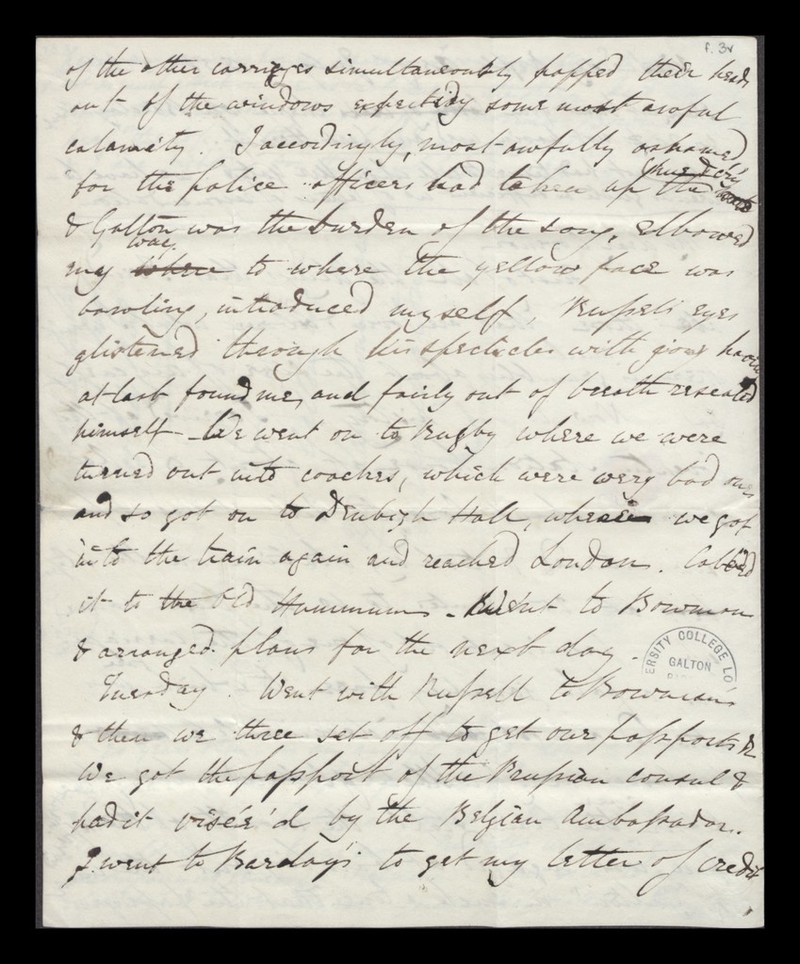 f. 3v
of the other carriages simultaneously popped their heads
out of the windows expecting some most awful
calamity. I accordingly, most awfully ashamed
for the police officers had taken up the hue & cry
& Galton was the burden of the song, elbowed
way
my where to where the yellow face was
bawling, introduced myself, Russell's eyes
glistened through his spectacles with joy having
at last found me, and fairly out of breath reseated
himself - We went on to Rugby where we were
turned out into coaches, which were very bad ones
and so got on to Denbigh Hall, where we got
into the train again and reached London. Cab'ed
it to the Old Hummums - Went to Bowman
& arranged plans for the next day -
ERSITY COLLEGE LO
GALTON
Tuesday. Went with Russell to Bowman's
& then we three set off to get our passports &c
We got the passport of the Prussian consul &
had it visée'd by the Belgian Ambassador.
I went to Barclay's to get my letter of credit